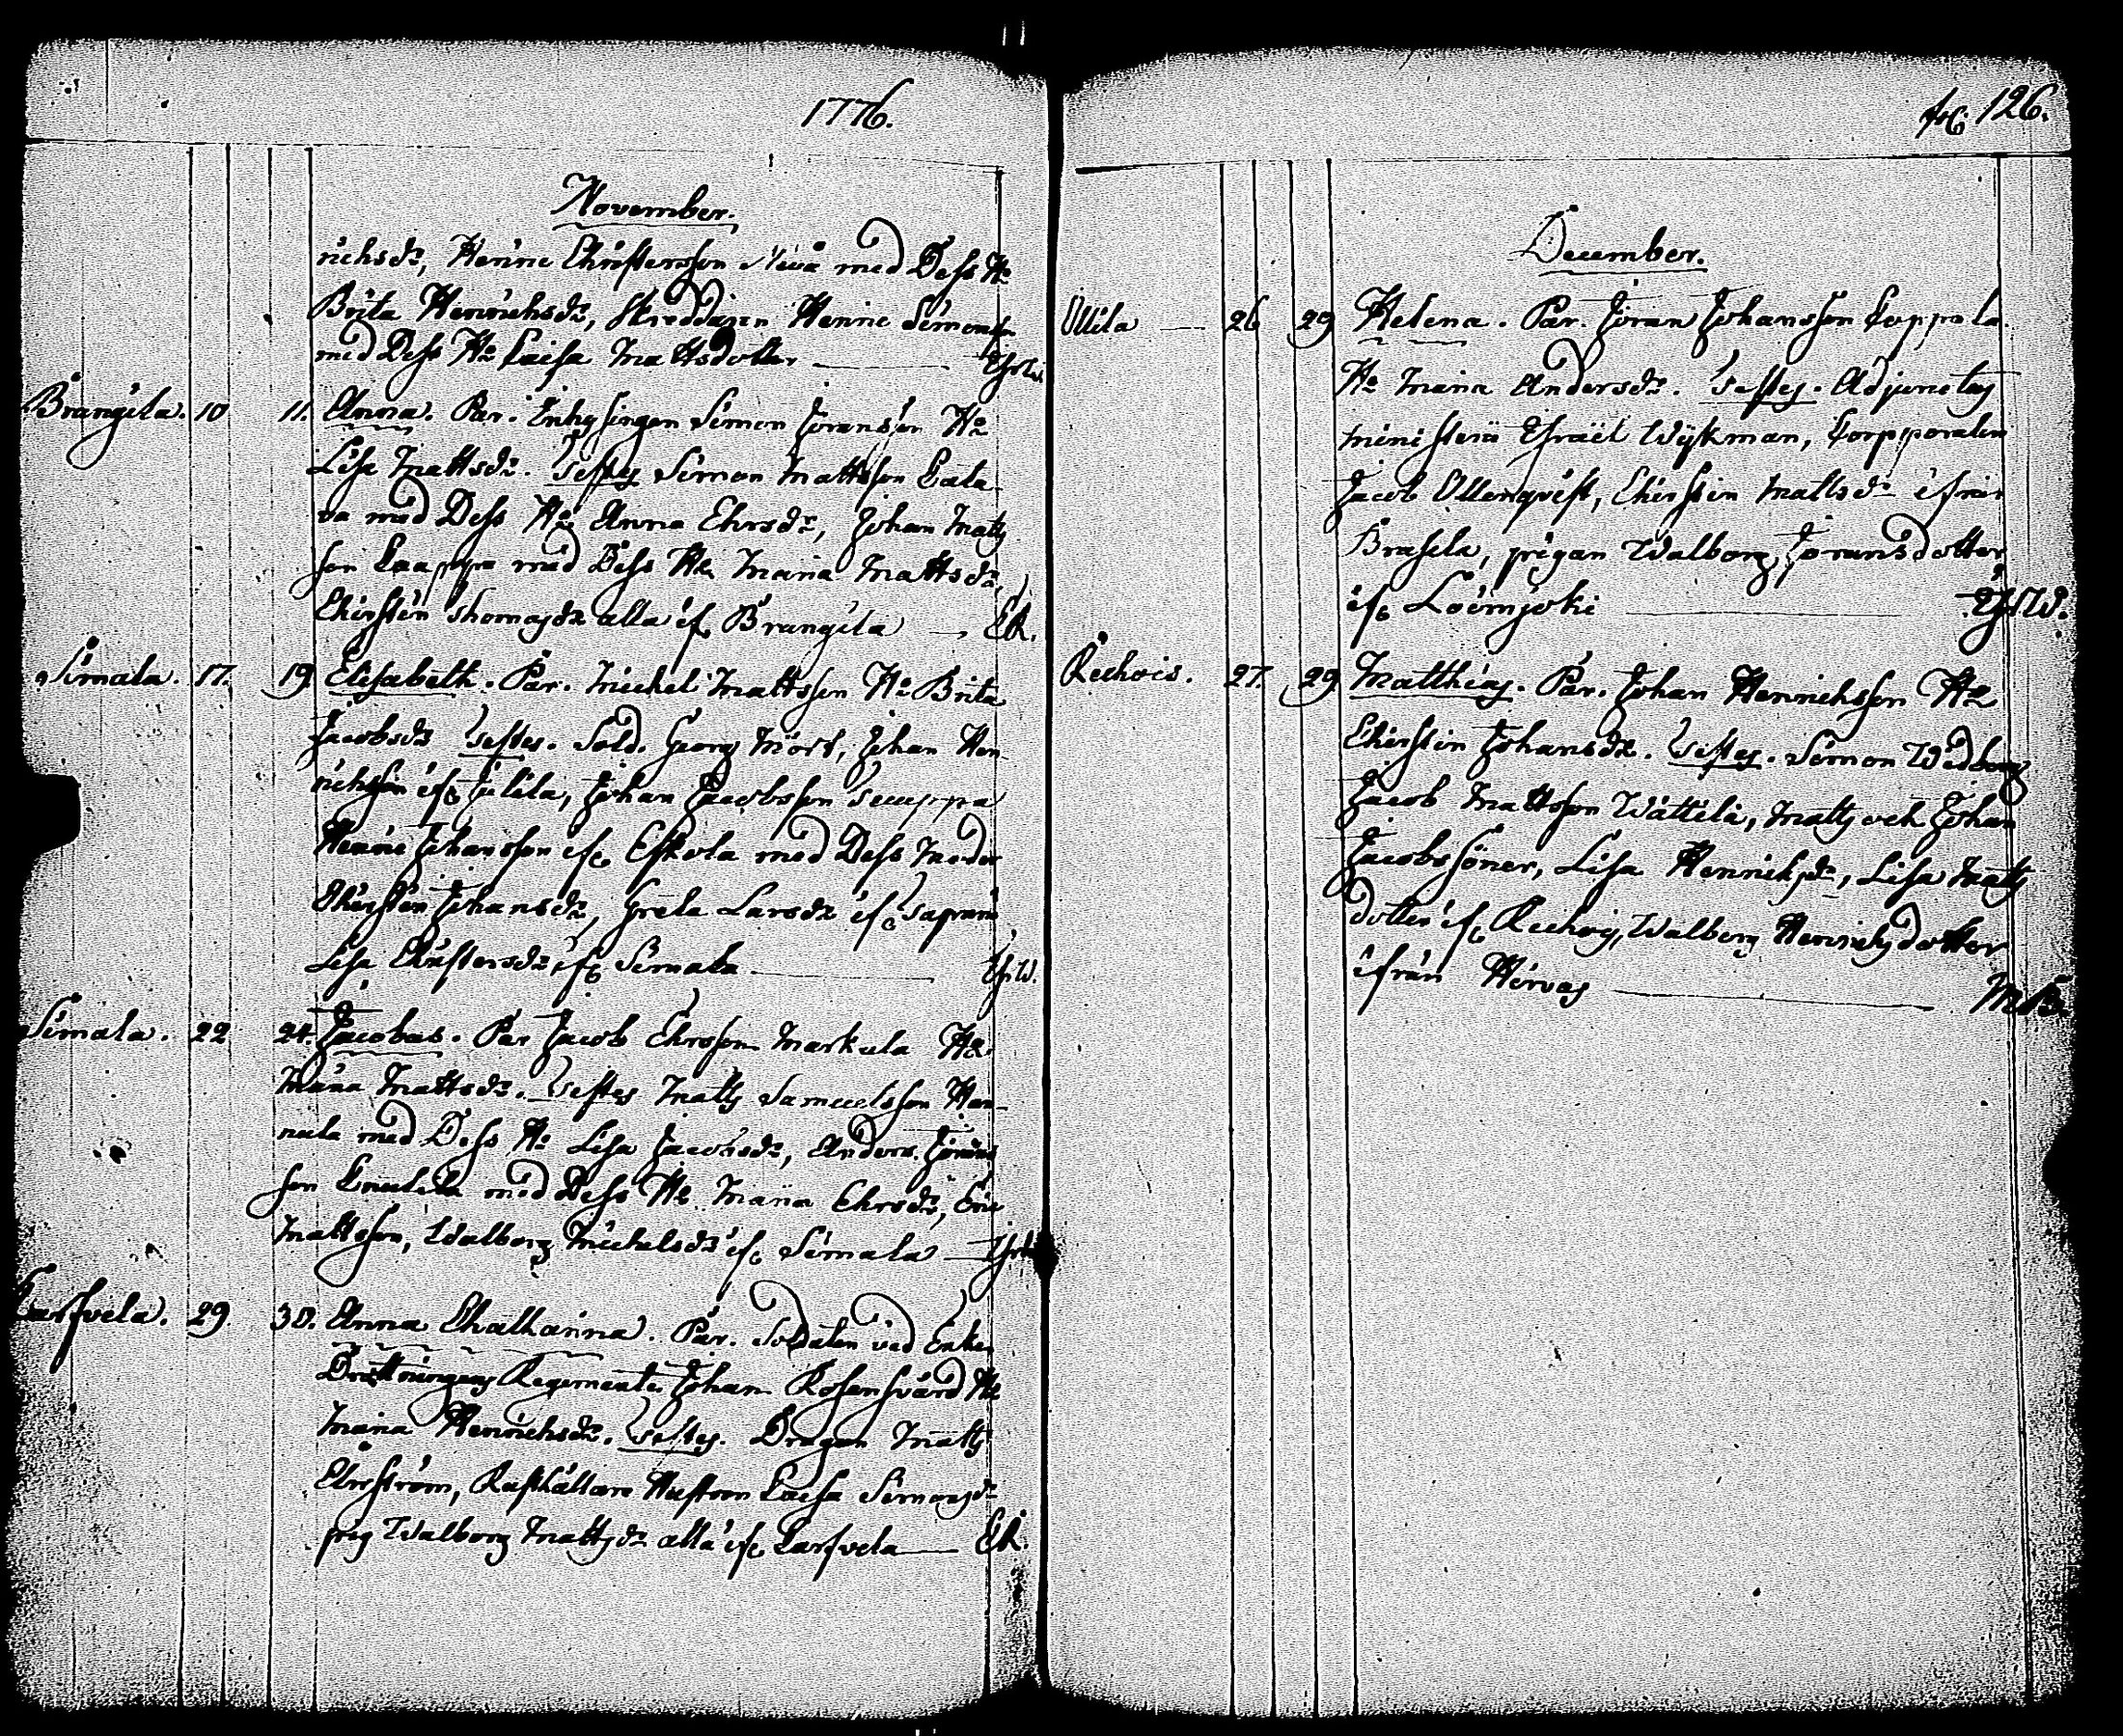 1776.
November.
richsdr, Henric Christersson Nevä med Dess Hu
Brita Henrichsdr, Skreddaren Henric Simonss.
med Dess Hu Caisa Mattsdotter — EsrW.
Brangila. 10 11. Anna. Par. Inhysingen Simon Jöransson Hu
Lisa Mattsdr. Testes Simon Mattsson Cata
va med Dess Hu Anna Ehrsdr, Johan Matts
son Caappa med Dess Hu Maria Mattsdr,
Chirstin Thomasdr alla if. Brangila — ER.
Simala. 17. 19. Elisabeth. Par. Michel Mattsson Hu Brita
Jacobsdr Testes. Sold. Georg Mört, Johan Hen
richsson if. Jilila, Johan Jacobsson Seuppa
Henric Johansson if. Eskola med Dess Moder
Chirstin Johansdr, Greta Larsdr if.
Lisa Christersdr if. Simala — EsrW.
Simala. 22 24. Jacobus. Par Jacob Ehrsson Markula Hu.
Maria Mattsdr. Testes Matts Samuelsson Han
nula med Dess Hu Lisa Jacobsdr, Anders Jörans
son Knutila med Dess Hu Maria Ehrsdr, Eric
Mattsson, Walborg Michelsdr if. Simala — EsrW
Carfvela. 29. 30. Anna Chatharina. Par. Soldaten vid Enke
Drottningens Regemente Johan Rosensvärd Hu
Maria Henrichsdr. Testes. Dragon Matts
Ehrström, Rusthållare Hustron Caisa Simonsdr
pig Walborg Mattsdr alla if. Carfvela — ER.
126.
December.
Ollila — 26 29 Helena. Par. Jöran Johansson Coppola.
Hu Maria Andersdr. Testes. Adjunctus
ministerii Esraël Wykman, Corpporalen
Jacob Ollenqvist, Chirstin Mattsdr ifrån
Brasila, pigan Walborg Joransdotter
if. Loimjoki — EsrW.
Rechois. 27. 29 Matthias. Par. Johan Henrichsson Hu
Chirstin Johansdr. Testes. Simon Widberg
Jacob Mattsson Wättilä, Matts och Johan
Jacobssöner, Lisa Henrichsdr, Lisa Matts
dotter if. Rechois, Walborg Henrichsdotter
ifrån Hirvas — MB.